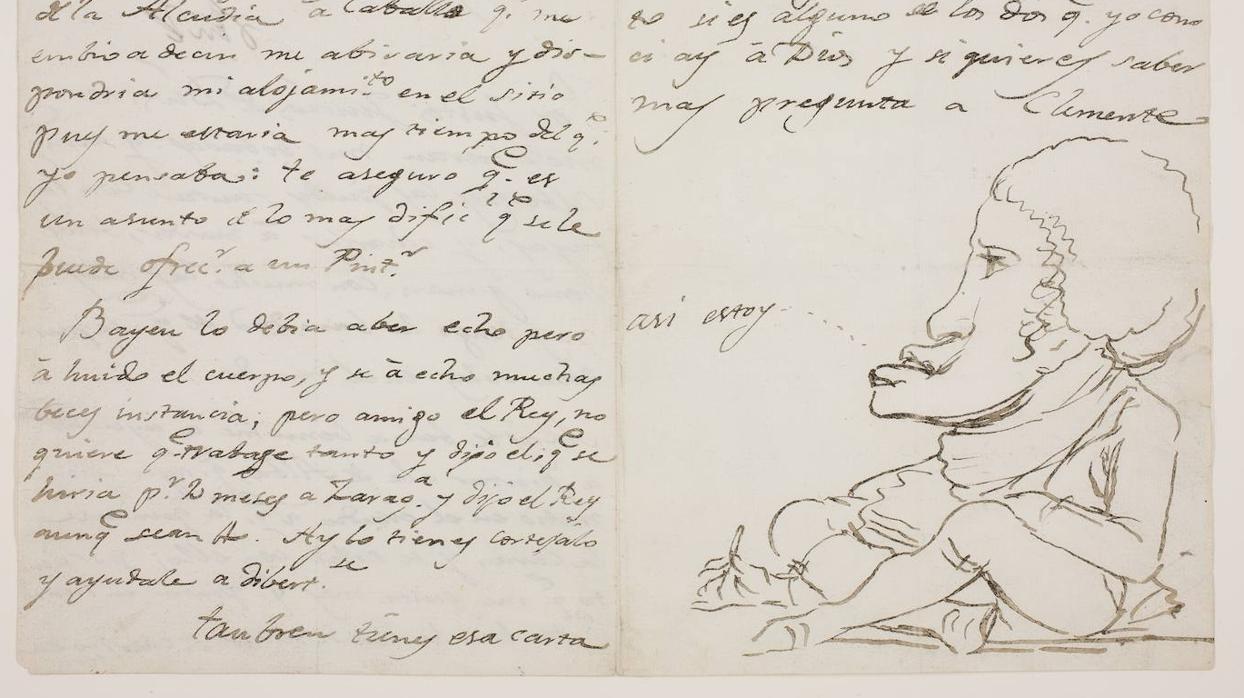 de la Alcudia à Caballo q.e me
embio a decir me abisaria y dis-
pondria mi alojami.to en el sitio
pues me estaria mas tiempo del q.e
yo pensaba: te aseguro q.e es
un asunto de lo mas dificil q.e se le
puede ofrec.r a un Pint.r
Bayeu lo debia aber echo pero
à huido el cuerpo, y se à echo muchas
beces instancia; pero amigo el Rey, no
quiere q.e trabage tanto y dijo el; q.e se
hiria p.r 2 meses a Zarag.a y dijo el Rey
aunq.e sean 4. Ay lo tienes cortejalo
y ayudale a dibert.se
tanbien tienes esa carta
si es alguno de los dos q. yo cono
ci ay à Dios y si quieres saber
mas pregunta a Clemente
asi estoy